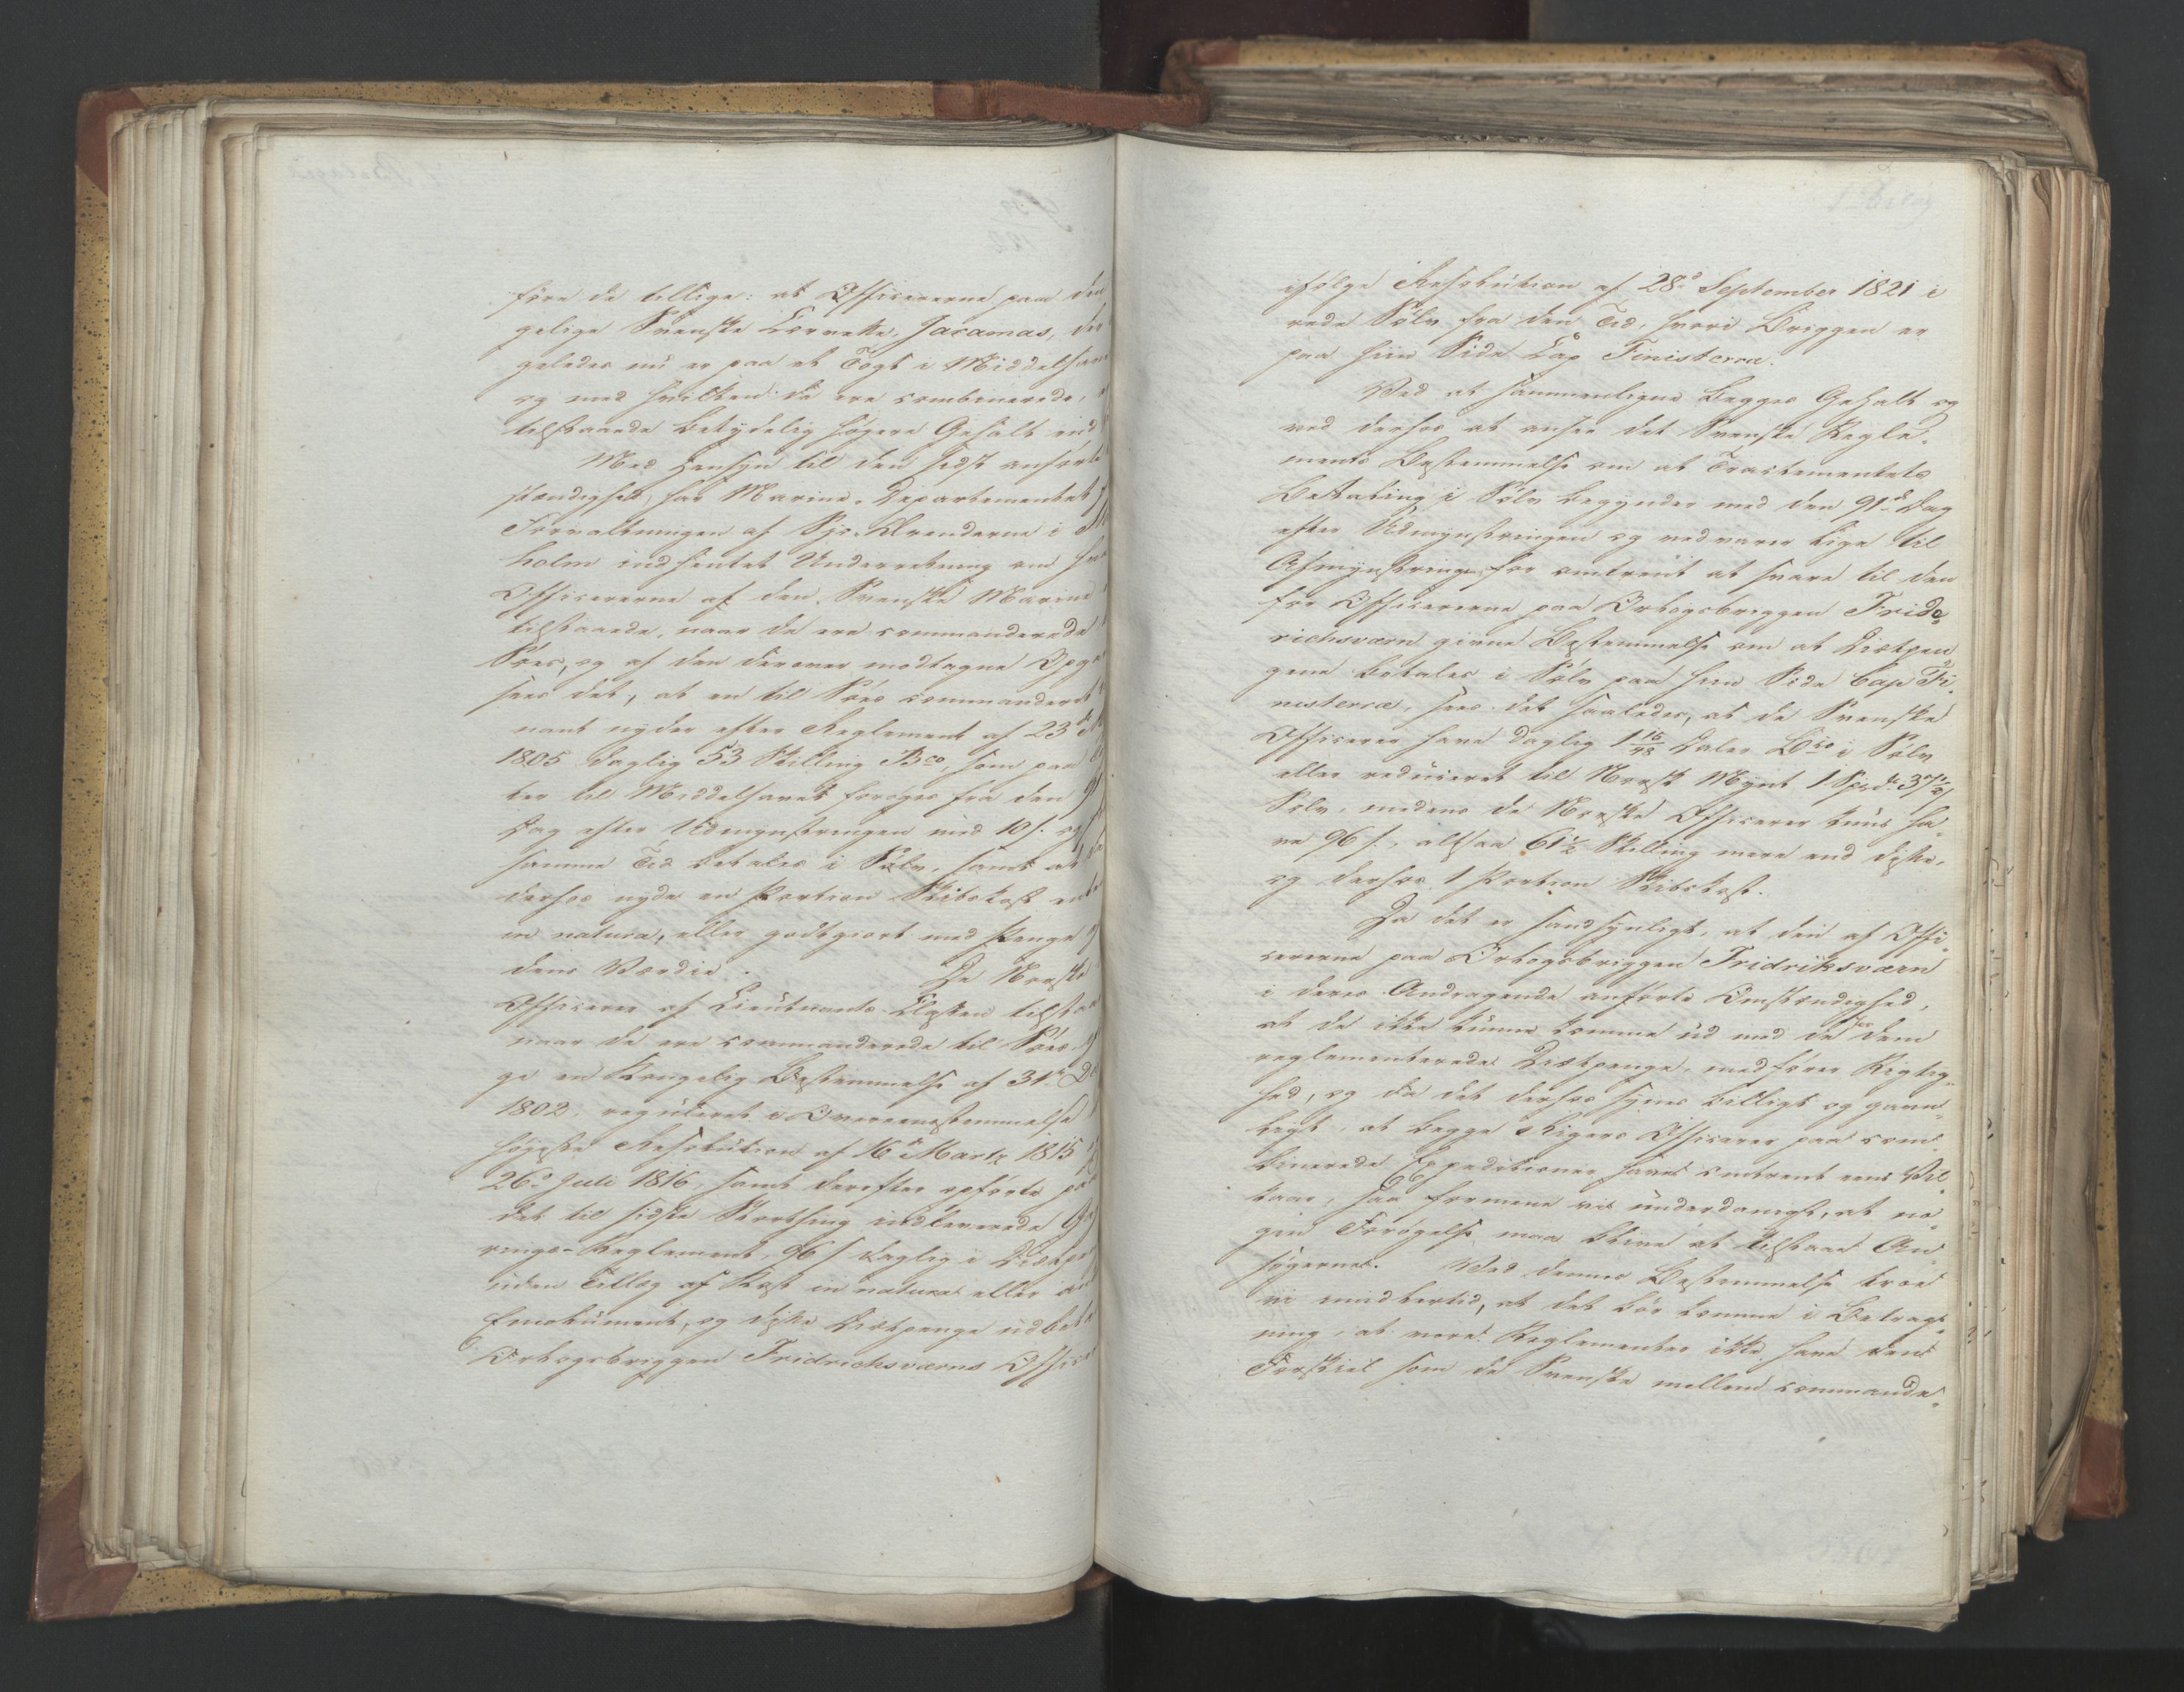 føre de tillige: at Officererne paa den
gelige Svenske Corvette, Jaramas, der
geledes nu er paa et Togt i Middelhav
og med hvilken de ere combinerede,
tilstaaede betydelig høyere Gehalt end
Med Hensyn til den sidst anførte
stændighed, har Marine-Departementet
Forvaltningen af Sjø-Ærenderne i
holm indhentet Underretning om
Officererne af den Svenske Marine
tilstaaede, naar de ere commanderede
Søes, og af den derover modtagne Opga
sees det, at en til Søes commanderet
nant nyder efter Reglement af 23de
1805 daglig 53 Skilling Bco, som paa
ter til Middelhavet forøges fra den 91
Dag efter Udmynstringen med 10 s. og
samme Tid betales i Sølv, samt at
derhos nyde en Portion Skibskost
in natura, eller godtgiort med Penge
dens Værdie. De Norske
Officerer af Lieutnants Classen tilstaa
naar de ere commanderede til Søes
ge en Kongelig Bestemmelse af 31te De
1802, reguleret i Overeensstemmelse
høyeste Resolution af 16de Martz 1815
26de Juli 1816, samt derefter opførte paa
det til sidste Storthing indleverede
rings-Reglement, 96 s daglig i Diætpe
uden Tillæg af Kost in natura eller
Emolument, og disse Diætpenge udbeta
Orlogsbriggen Fridrichsværns Office
ifølge Resolution af 28de September 1821 i
rede Sølv fra den Tid, hvori Briggen er
paa hiin Side Cap Finisterra.
Ved at sammenligne begges Gehalt og
ved derhos at ansee det Svenske Regle-
ments Bestemmelse om at Tractementets
Betaling i Sølv begynder med den 91de Dag
efter Udmynstringen og vedvarer lige til
Afmynstringen, for omtrent at svare til den
for Officererne paa Orlogsbriggen Fride-
richsværn givne Bestemmelse om at Diætpen-
gene betales i Sølv paa hiin Side Cap Fi-
nisterra, sees det saaledes, at de Svenske
Officerer have daglig 1 15/48 Daler Bco i Sølv
eller reduceret til Norsk Mynt 1 Spd. 37 1/2 s
Sølv, medens de Norske Officerer kuns ha-
ve 96 s., altsaa 61 1/2 Skilling mere end disse,
og derhos 1 Portion Skibskost.
Da det er sandsynligt, at den af Offi-
cererne paa Orlogsbriggen Fridriksværn
i deres Andragende anførte Omstændighed,
at de ikke kunne komme ud med de for dem
reglementerede Diætpenge, medfører Rigtig-
hed, og da det derhos synes billigt og gavn-
ligt, at begge Rigers Officerer paa com-
binerede Expeditioner have omtrent eens Vil-
kaar, saa formene vi underdanigst, at no-
gen Forøgelse maa blive at tilstaae An-
søgerne. Ved denne Bestemmelse troe
vi imidlertid, at det bør komme i Betragt-
ning, at vore Reglementer ikke have den
Forskiel som de Svenske mellem commande-